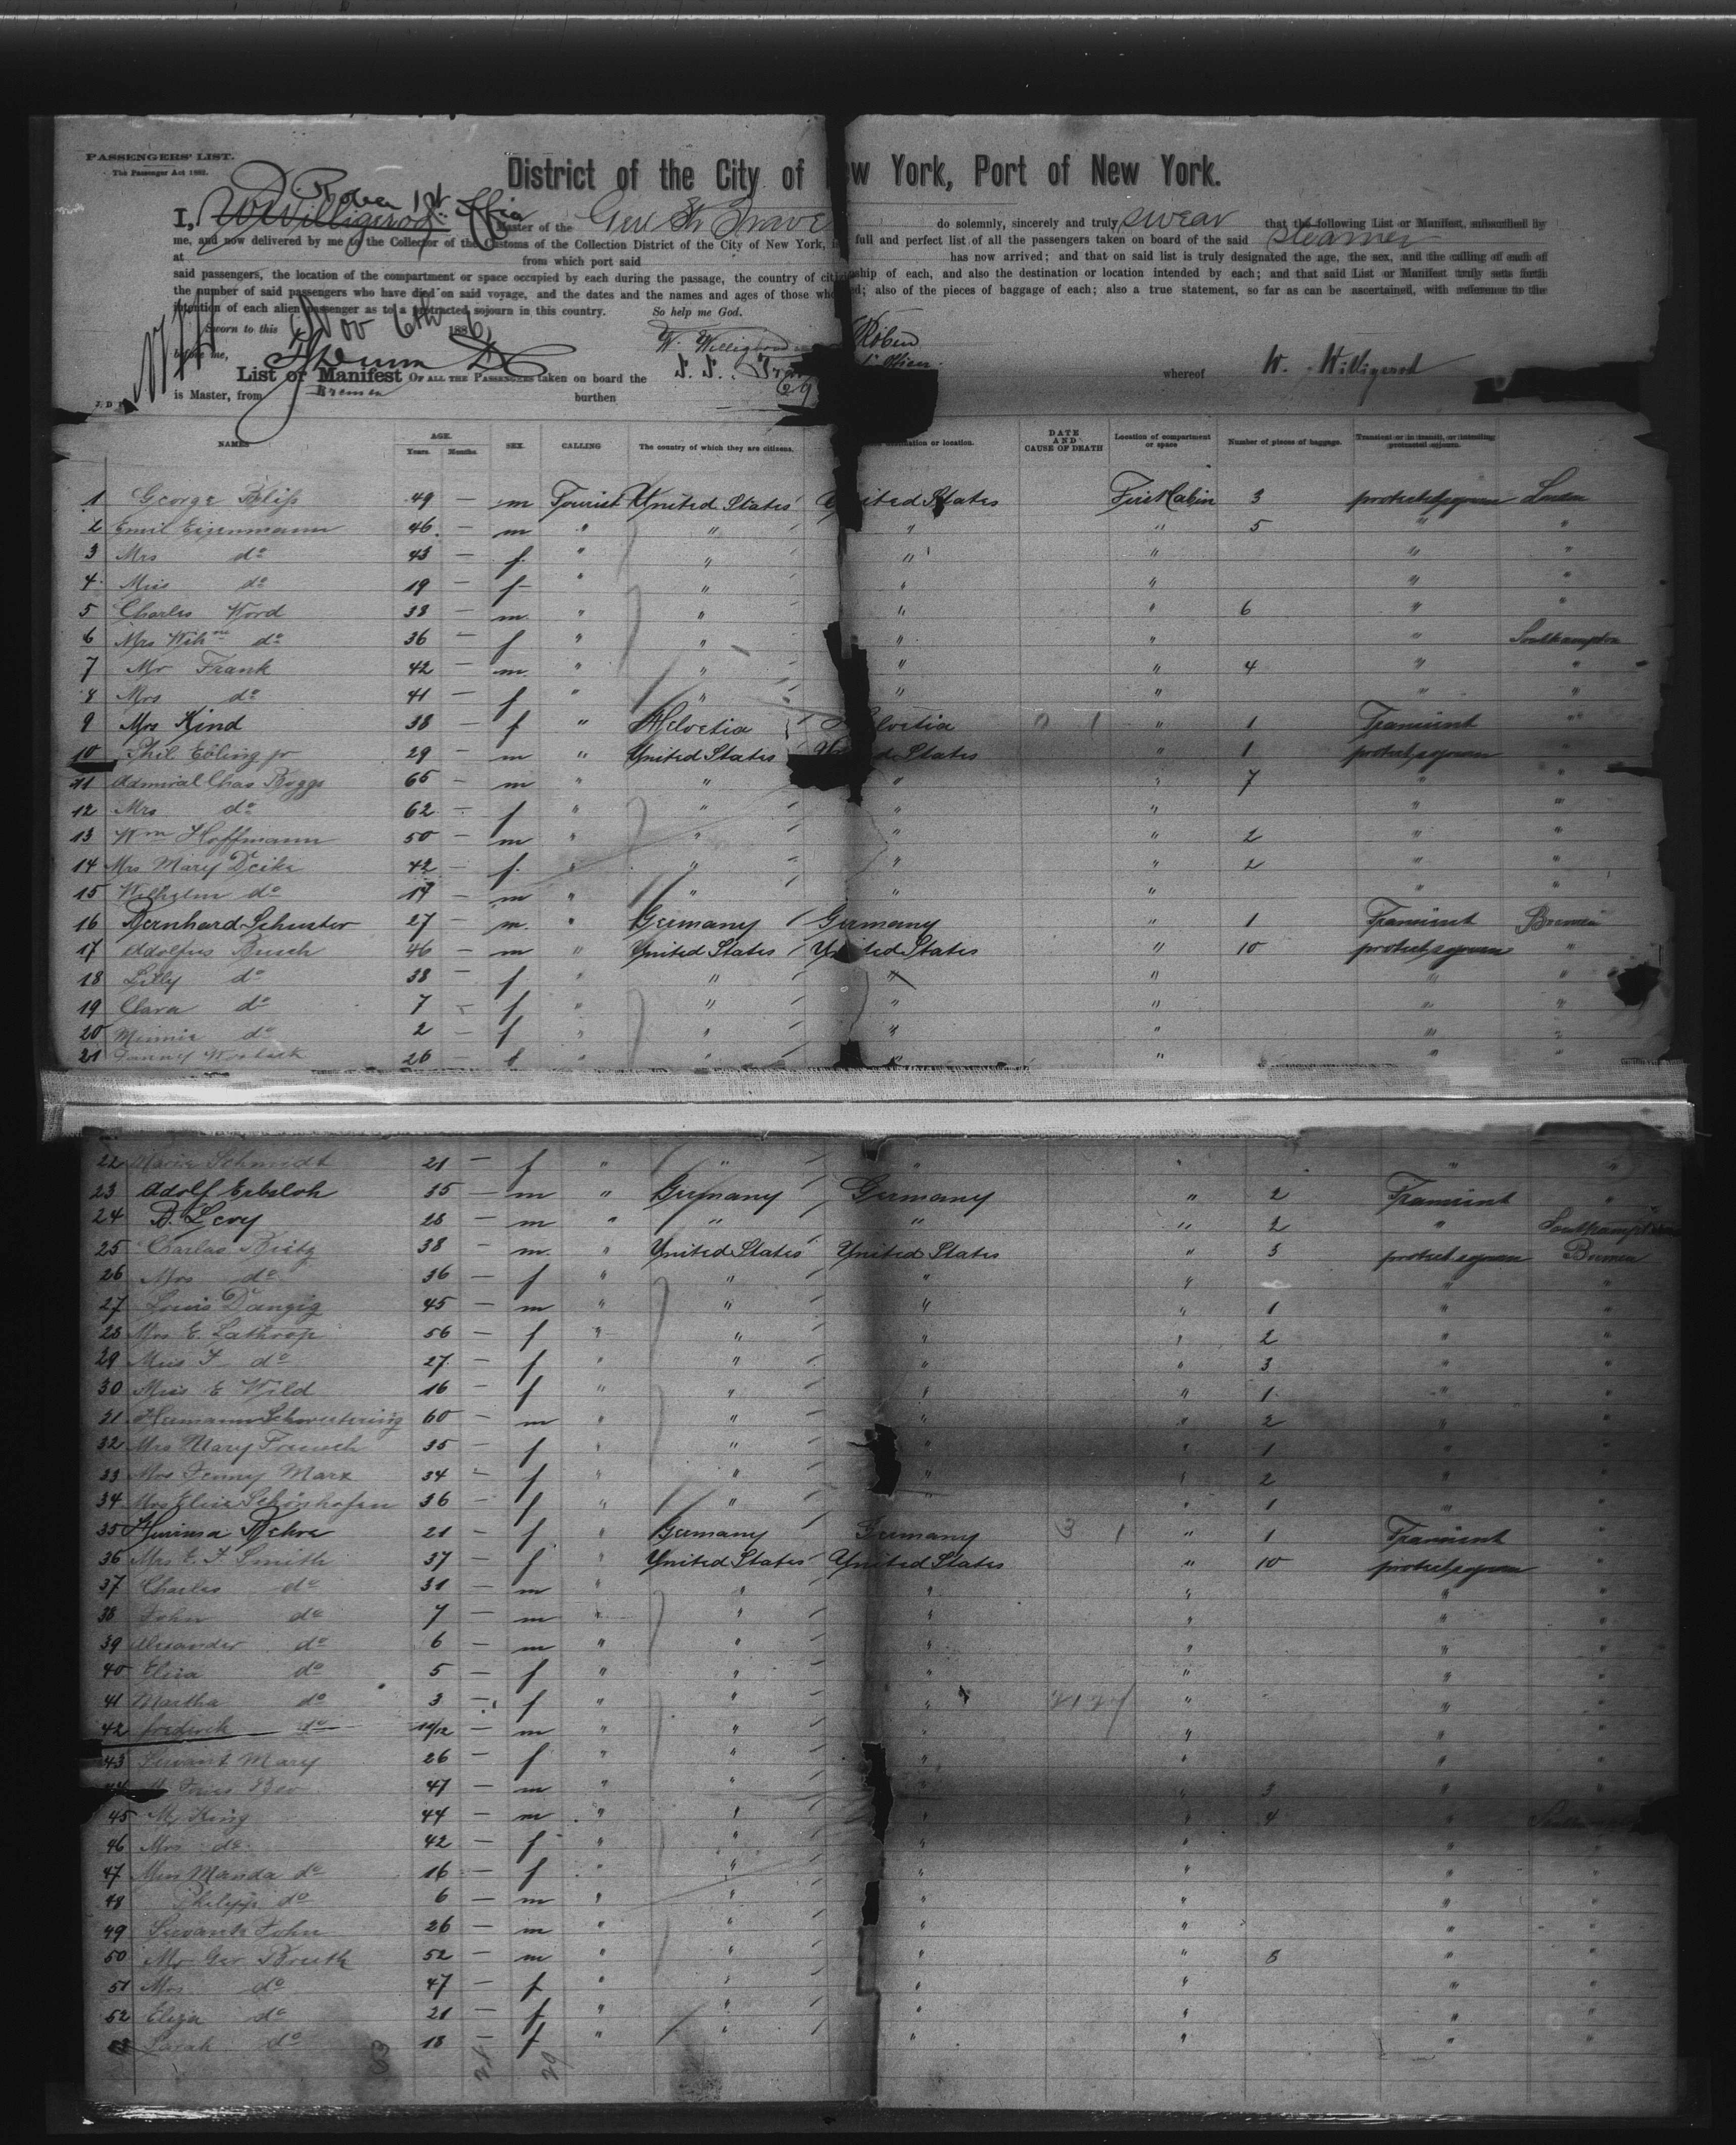 PASSENGERS' LIST.
The Passenger Act 1882.
District of the City of New York, Port of New York.
I, W. Willigerod Master of the Ger Str Trave do solemnly, sincerely and truly swear that the following List or Manifest, subscribed by
me, and now delivered by me to the Collector of the Customs of the Collection District of the City of New York, full and perfect list of all the passengers taken on board of the said steamer
at from which port said has now arrived; and that on said list is truly designated the age, the sex, and the calling of each of
said passengers, the location of the compartment or space occupied by each during the passage, the country of citizenship of each, and also the destination or location intended by each; and that said List or Manifest truly sets forth
the number of said passengers who have died on said voyage, and the dates and the names and ages of those who died; also of the pieces of baggage of each; also a true statement, so far as can be ascertained, with reference to the
intention of each alien passenger as to a protracted sojourn in this country. So help me God.
Sworn to this Nov 6th 1886
before me,
W. Willigerod
List or Manifest OF ALL THE PASSENGERS taken on board the S. S. whereof W. Willigerod
is Master, from Bremen burthen
NAMES AGE. Years. Months. SEX. CALLING The country of which they are citizens. Destination or location. DATE AND CAUSE OF DEATH Location of compartment or space Number of pieces of baggage. Transient or in transit, or intending protracted sojourn.
1 George Bliss 49 — m Tourist United States United States First Cabin 3 London
2 Emil Eisenmann 46 — m " " " " 5 " "
3 Mrs do 43 — f " " " " " "
4 Miss do 19 — f " " " " " "
5 Charles Word 33 — m " " " " 6 " "
6 Mrs do 36 — f " " " " " Southampton
7 Mr Frank 42 — m " " " " 4 " "
8 Mrs do 41 — f " " " " " "
9 Mrs Kind 38 — f " Helvetia Helvetia " 1 Transient "
10 Phil Ebling jr 29 — m " United States United States " 1 "
11 Admiral Chas Boggs 65 — m " " " " 7 " "
12 Mrs do 62 — f " " " " " "
13 Wm Hoffmann 50 — m " " " " 2 " "
14 Mrs Mary Deike 42 — f " " " " 2 " "
15 Wilhelm do 17 — m " " " " " "
16 Bernhard Schuster 27 — m " Germany Germany " 1 Transient Bremen
17 Adolfus Busch 46 — m " United States United States " 10 "
18 Lilly do 38 — f " " " " " "
19 Clara do 7 — f " " " " " "
20 Minnie do 2 — f " " " " " "
21 Fanny 26 — f " " " " " "
22 Marie Schmidt 21 — f " " " " " "
23 Adolf Erbsloh 35 — m " Germany Germany " 2 Transient "
24 B. Levy 28 — m " " " " 2 " Southampton
25 Charles Bietz 38 — m " United States United States " 3 Bremen
26 Mrs do 36 — f " " " " " "
27 Louis Danzig 45 — m " " " " 1 " "
28 Mrs E. Lathrop 56 — f " " " " 2 " "
29 Miss F do 27 — f " " " " 3 " "
30 Miss E Wild 16 — f " " " " 1 " "
31 Hermann Schwietering 60 — m " " " " 2 " "
32 Mrs Mary French 35 — f " " " " 1 " "
33 Mrs Jenny Marx 34 — f " " " " 2 " "
34 Mrs Elise Schönhofen 36 — f " " " " 1 " "
35 Rehre 21 — f " Germany Germany 3 1 " 1 Transient "
36 Mrs E. F. Smith 37 — f " United States United States " 10 "
37 Charles do 31 — m " " " " " "
38 John do 7 — m " " " " " "
39 Alexander do 6 — m " " " " " "
40 Elisa do 5 — f " " " " " "
41 Martha do 3 — f " " " " " "
42 frederick do 10/12 — m " " " " " "
43 Servant Mary 26 — f " " " " " "
44 47 — m " " " " 3 " "
45 Mr King 44 — m " " " " 4 "
46 Mrs do 42 — f " " " " " "
47 Miss Manda do 16 — f " " " " " "
48 Philipp do 6 — m " " " " " "
49 Servant John 26 — m " " " " " "
50 Mr Geo Breith 52 — m " " " " 8 " "
51 Mrs do 47 — f " " " " " "
52 Eliza do 21 — f " " " " " "
53 Sarah do 18 — f " " " " " "